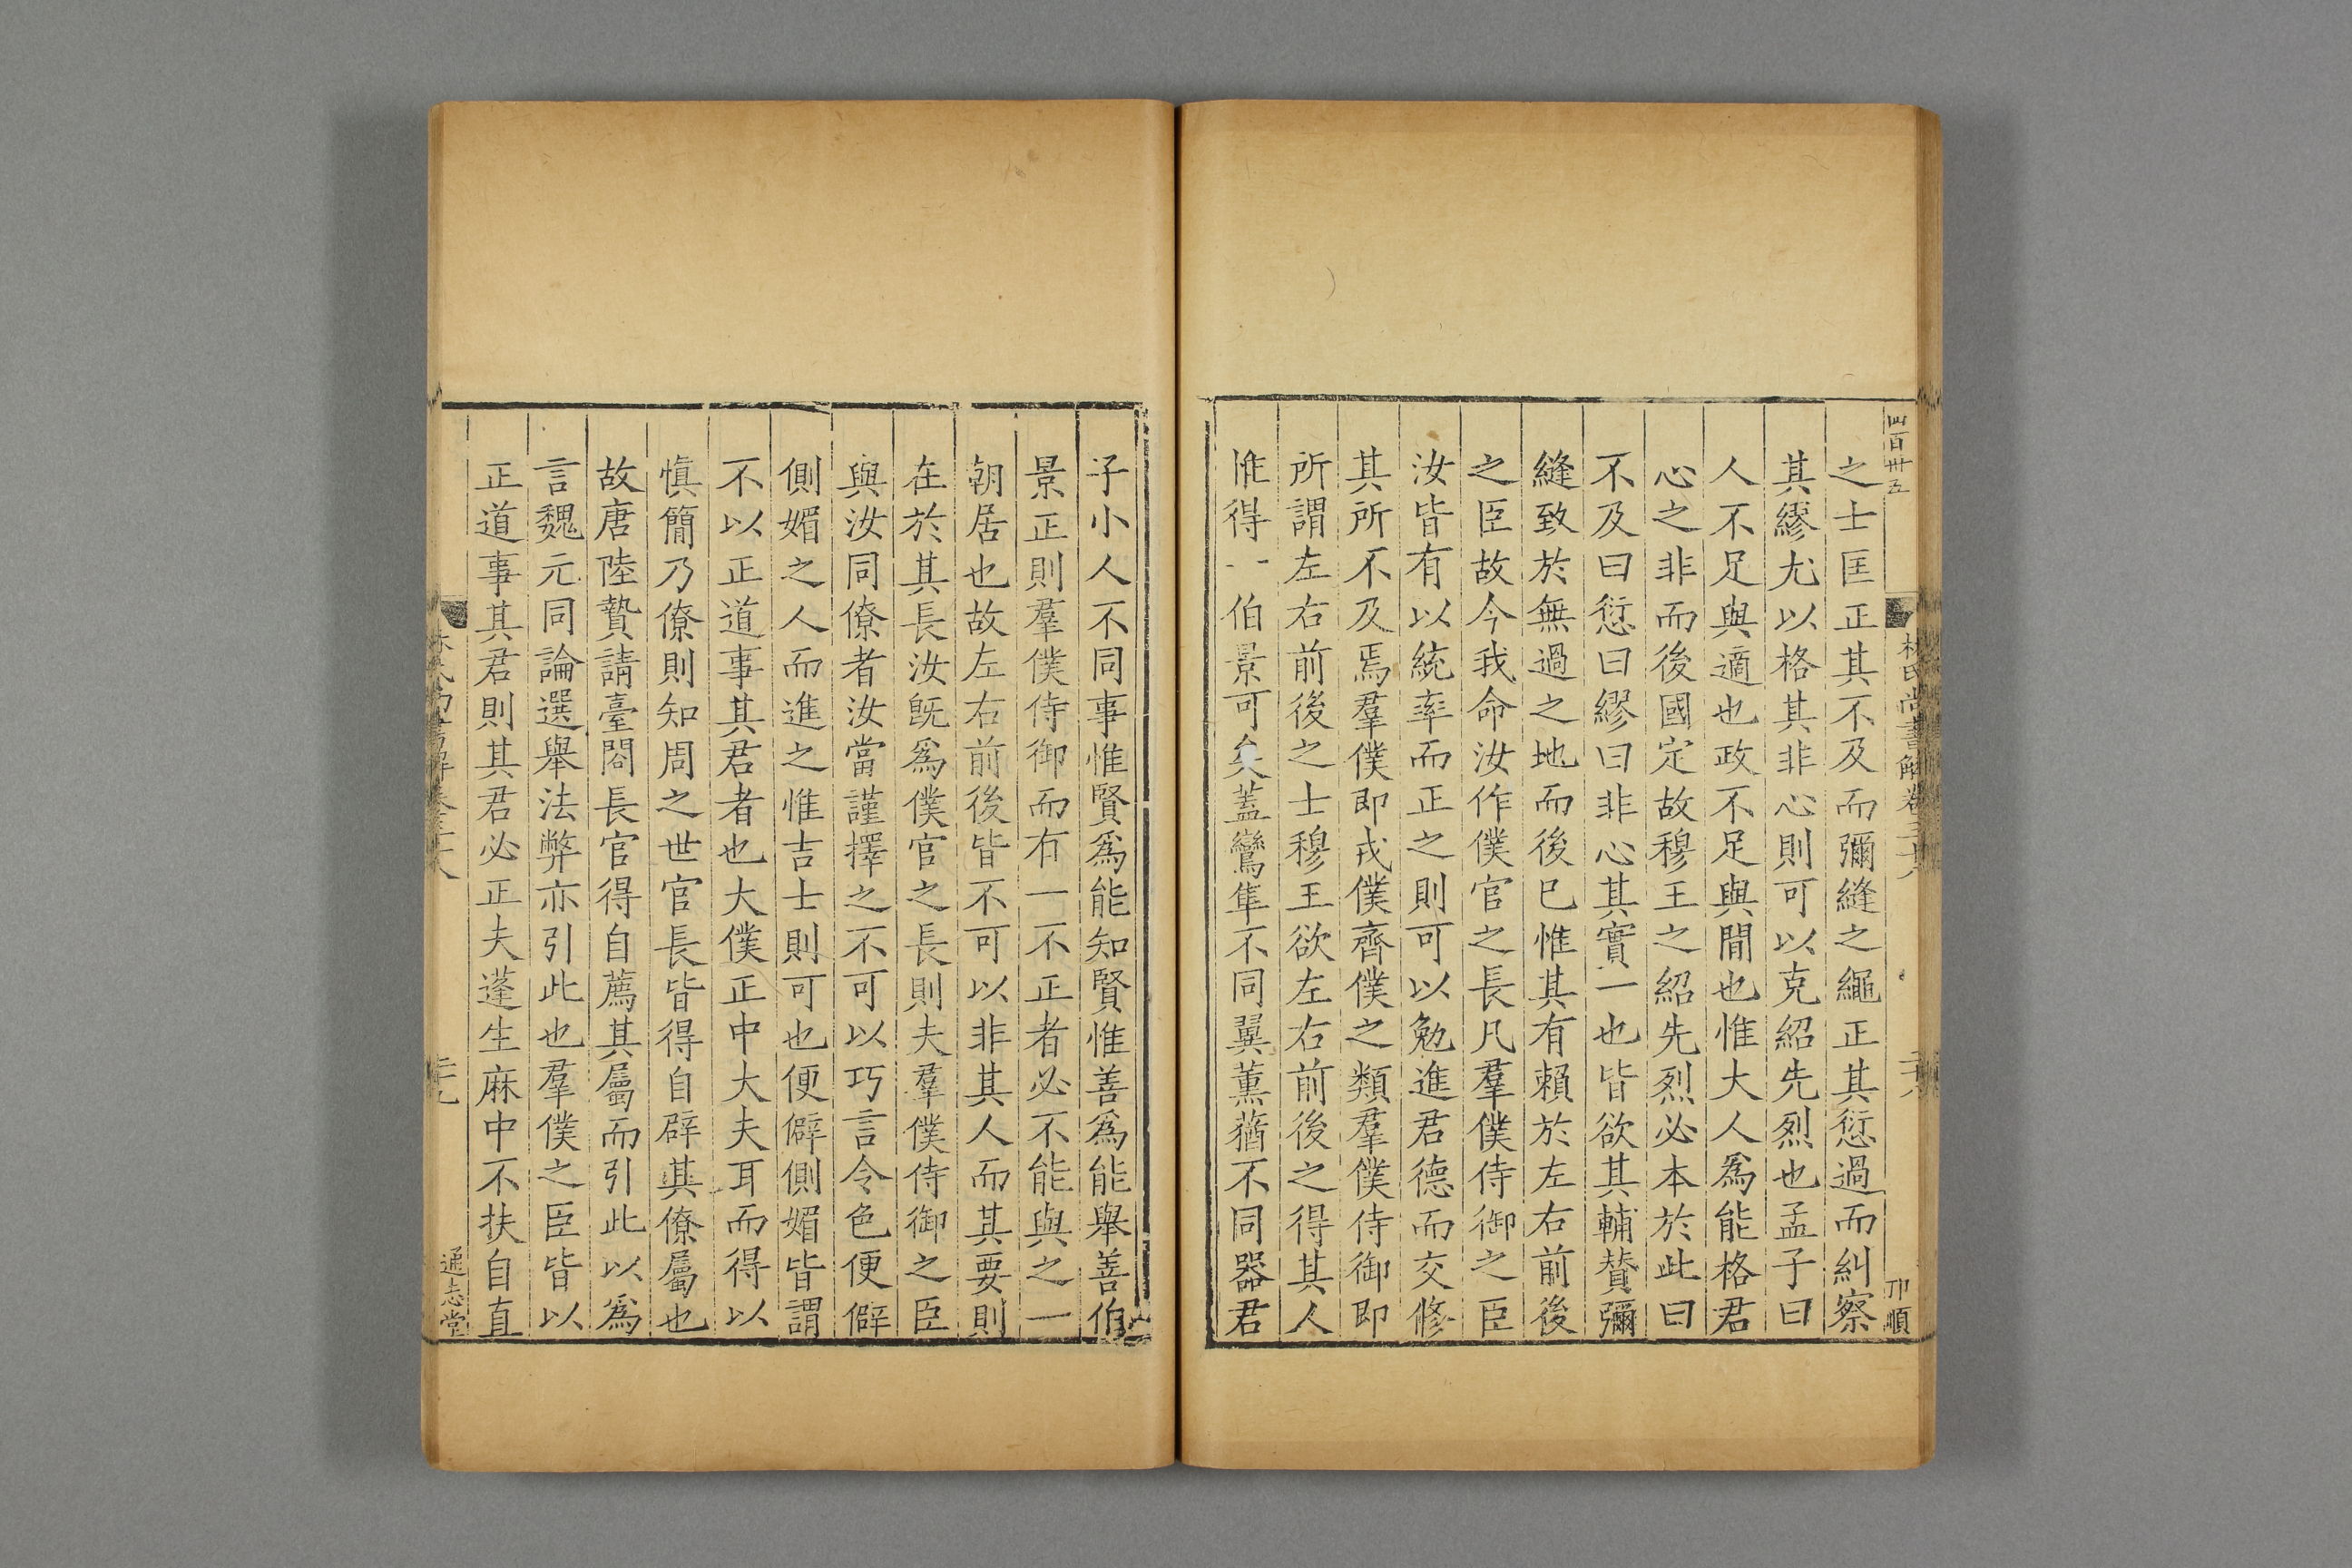 四百卅五
林氏尚書解卷三十八
卭順
之士匡正其不及而彌縫之繩正其愆過而糾察
其繆尤以格其非心則可以克紹先烈也孟子曰
人不足與適也政不足與閒也惟大人爲能格君
心之非而後國定故穆王之紹先烈必本於此曰
不及曰愆曰繆曰非心其實一也皆欲其輔賛彌
縫致於無過之地而後已惟其有賴於左右前後
之臣故今我命汝作僕官之長凡羣僕侍御之臣
汝皆有以統率而正之則可以勉進君德而交修
其所不及焉羣僕即戎僕齊僕之類羣僕侍御即
所謂左右前後之士穆王欲左右前後之得其人
惟得一伯景可矣蓋鸞隼不同翼薰蕕不同器君
子小人不同事惟賢爲能知賢惟善爲能舉善伯
景正則羣僕侍御而有一不正者必不能與之一
朝居也故左右前後皆不可以非其人而其要則
在於其長汝旣爲僕官之長則夫羣僕侍御之臣
與汝同僚者汝當謹擇之不可以巧言令色便僻
側媚之人而進之惟吉士則可也便僻側媚皆謂
不以正道事其君者也大僕正中大夫耳而得以
愼簡乃僚則知周之世官長皆得自辟其僚屬也
故唐陸贄請臺閣長官得自薦其屬而引此以爲
言魏元同論選舉法弊亦引此也羣僕之臣皆以
正道事其君則其君必正夫蓬生麻中不扶自直
林氏尚書解卷三十八
通志堂